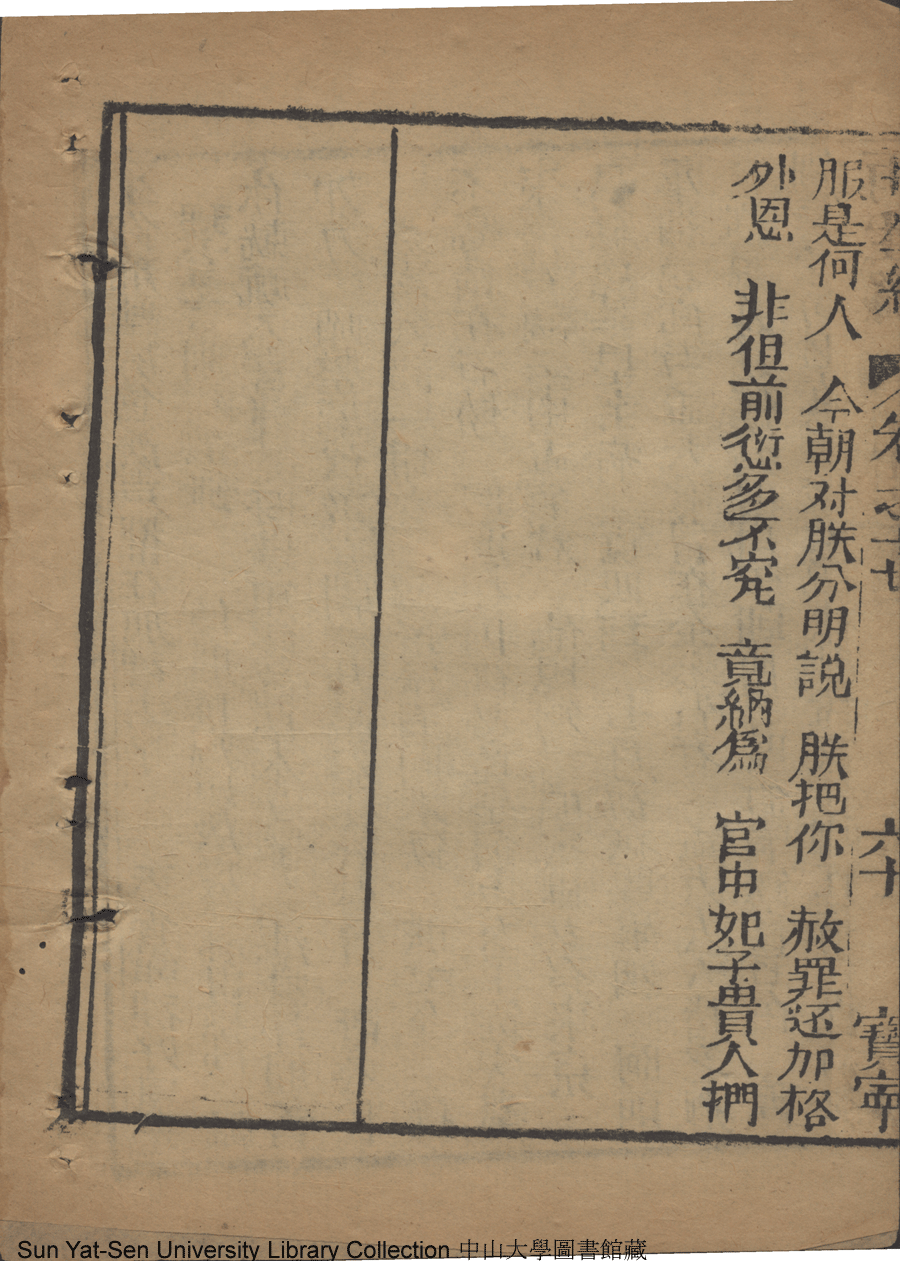 再生緣 卷之十七 六十 寶寧
服是何人 今朝对朕分明説 朕把你 赦罪还加格
外恩 非但前愆多不究 竟納爲 官中妃子貴人捫
Sun Yat-Sen University Library Collection 中山大學圖書館藏